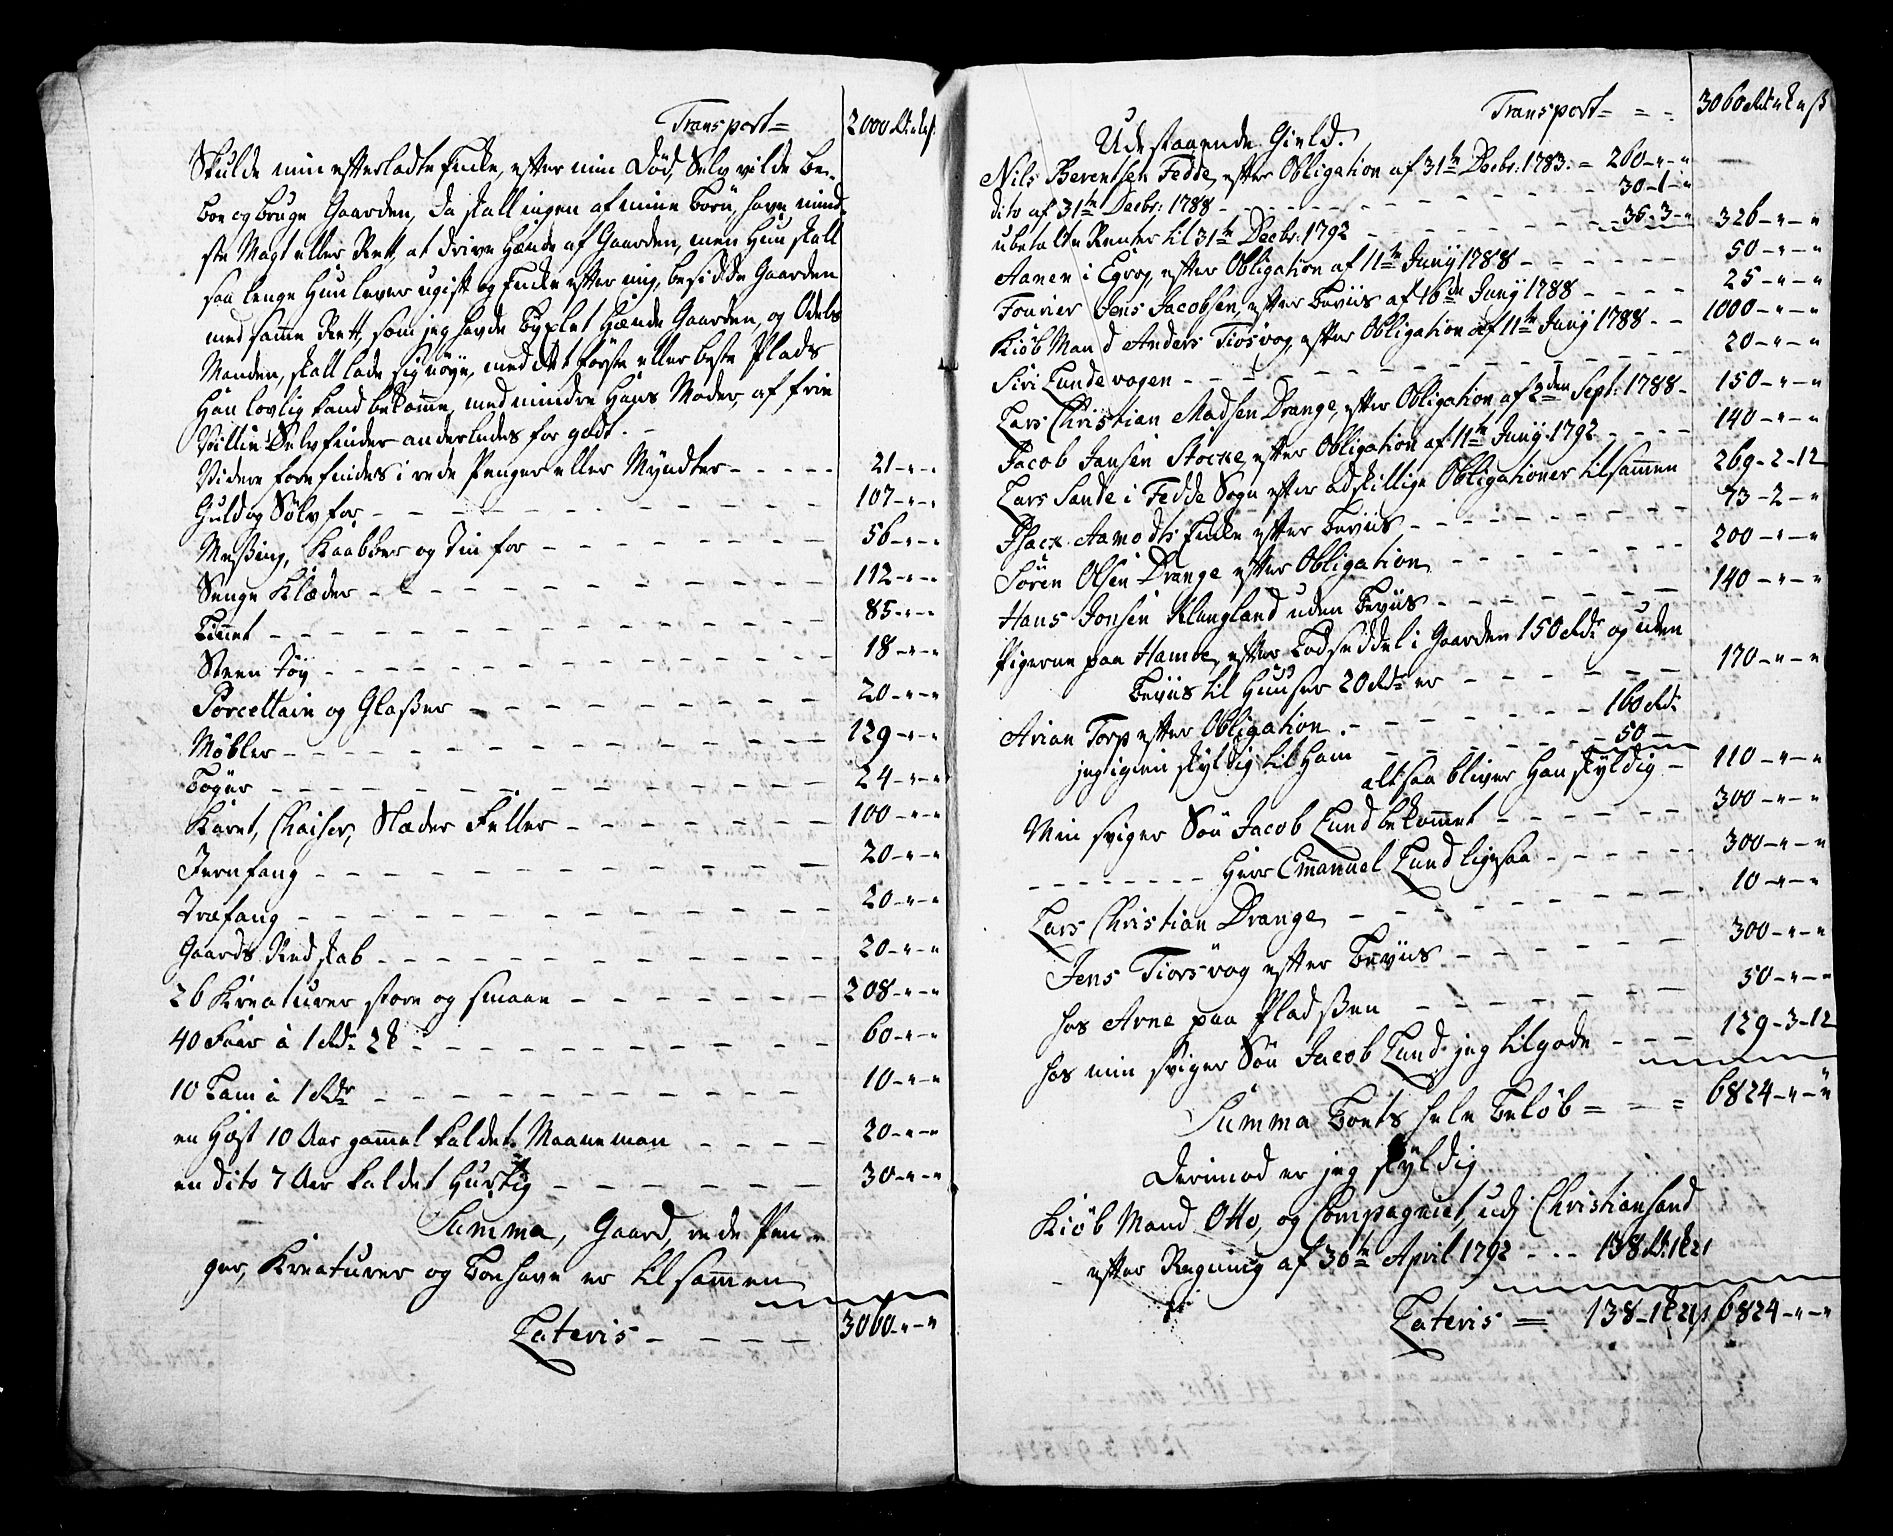 Transport = 2000 Rd „ ß
Skulde min efterladte Enke, efter min Död, Selv vilde be-
boe og bruge Gaarden, da skall ingen af mine Börn, have mind-
ste Magt eller Rett, at drive Hænde af Gaarden, men Hun skall
saa lenge Hun lever ugift og Enke efter mig, besidde Gaarden
med samme Rett, som jeg havde Byxlet Hænde Gaarden, og Odels
Manden, skall lade sig nöye, med det förste eller beste Plads
Han lovlig kand bekomme, med mindre Hans Moder, af frie
Villie Selv finder anderledes for godt. -
Videre forefindes i rede Penger eller Myndter - - - - - 21 - „ - „
Guld og Sölv for - - - - - 107 - „ - „
Messing, Kaabber og Tin for - - - - - 56 - „ - „
Senge Klæder - - - - - 112 - „ - „
Linnet - - - - - 85 - „ - „
Steen Töy - - - - - 18 - „ - „
Porcellain og Glasser - - - - - 20 - „ - „
Möbler - - - - - 129 - „ - „
Böger - - - - - 24 - „ - „
Karet, Chaiser, Slæder Feller - - - - - 100 - „ - „
Jernfang - - - - - 20 - „ - „
Træfang - - - - - 20 - „ - „
Gaards Redskab - - - - - 20 - „ - „
26 Kreaturer store og smaae - - - - - 208 - „ - „
40 Faar à 1 Rdr 2 - - - - - 60 - „ - „
10 Lam à 1 Rdr - - - - - 10 - „ - „
en Hæst 10 Aar gammel kaldet Maaneman - - - - 20 - „ - „
en dito 7 Aar kaldet Hurtig - - - - - 30 - „ - „
Summa, Gaard, rede Pen-
ger, Kreaturer og Boehave er tilsammen
Lateris - - - - - 3060 - „ - „
Transport = = = 3060 Rdr „ „ ß
Udestaaende Gield.
Nils Berentsen Fedde, efter Obligation af 31te Decbr: 1783. = 260 - „ - „
dito af 31te Decbr: 1788 - - - - - 30 - 1 - „
ubetalte Renter til 31te Decbr: 1792 - - - - - 35 - 3 - „ 326 - „ - „
Aanen i Egrog, efter Obligation af 11te Juny 1788 - - - - - 50 - „ - „
Fourier Jens Jacobsen, efter Beviis af 16de Juny 1788 - - - - 25 - „ - „
Kiöb Mand Anders Tiorsvog, efter Obligation af 11te Juny 1788 - - 1000 - „ - „
Siri Lundevogen - - - - - 20 - „ - „
Lars Christian Madsen Drange, efter Obligation af 2den Sept: 1788 - 150 - „ - „
Jacob Jansen Stocke, efter Obligation af 11te Juny 1792 - - - - 140 - „ - „
Lars Sande i Fedde Sogn efter adskillige Obligationer tilsammen 269 - 2 - 12
Isack Aamodts Enke efter Beviis - - - - - 73 - 2 - „
Sören Olsen Drange efter Obligation - - - - - 200 - „ - „
Hans Jonsen Klungland uden Beviis - - - - - 140 - „ - „
Pigerne paa Hamre, efter Lodseddel i Gaarden 150 Rdr og uden
Beviis til Huuser 20 Rdr er - - - - - 170 - „ - „
Arian Torp efter Obligation - - - - - 160 Rdr
jeg igien skyldig til Ham - - - - - 50 -
altsaa bliver Han skyldig - 110 - „ - „
Min sviger Sön Jacob Lund bekommet - - - - - 300 - „ - „
- - - - - - - Herr Emanuel Lund ligesaa - - - - - 300 - „ - „
Lars Christian Drange - - - - - 10 - „ - „
Jens Tiorsvog efter Beviis - - - - - 300 - „ - „
hos Arne paa Pladssen - - - - - 50 - „ - „
hos min sviger Sön Jacob Lund jeg tilgode - - - 129 - 3 - 12
Summa Boets hele Belöb = = = 6824 - „ - „
Derimod er jeg skyldig
Kiöb Mand Otto, og Compagniet, udj Christiansand
efter Regning af 30te April 1792 - - - 138 Rd: 1 21
Lateris = 138 - 1 21 ß 6824 - „ - „